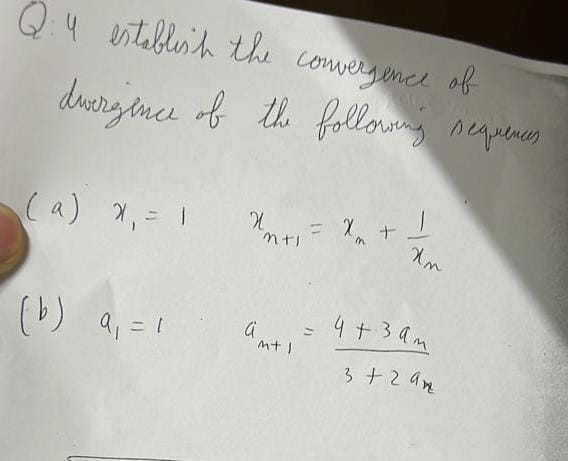 Q.4 establish the convergence of
divergence of the following sequences
(a) x₁ = 1 xₙ₊₁ = xₙ + 1/xₙ
(b) a₁ = 1 aₙ₊₁ = (4 + 3aₙ)/(3 + 2aₙ)